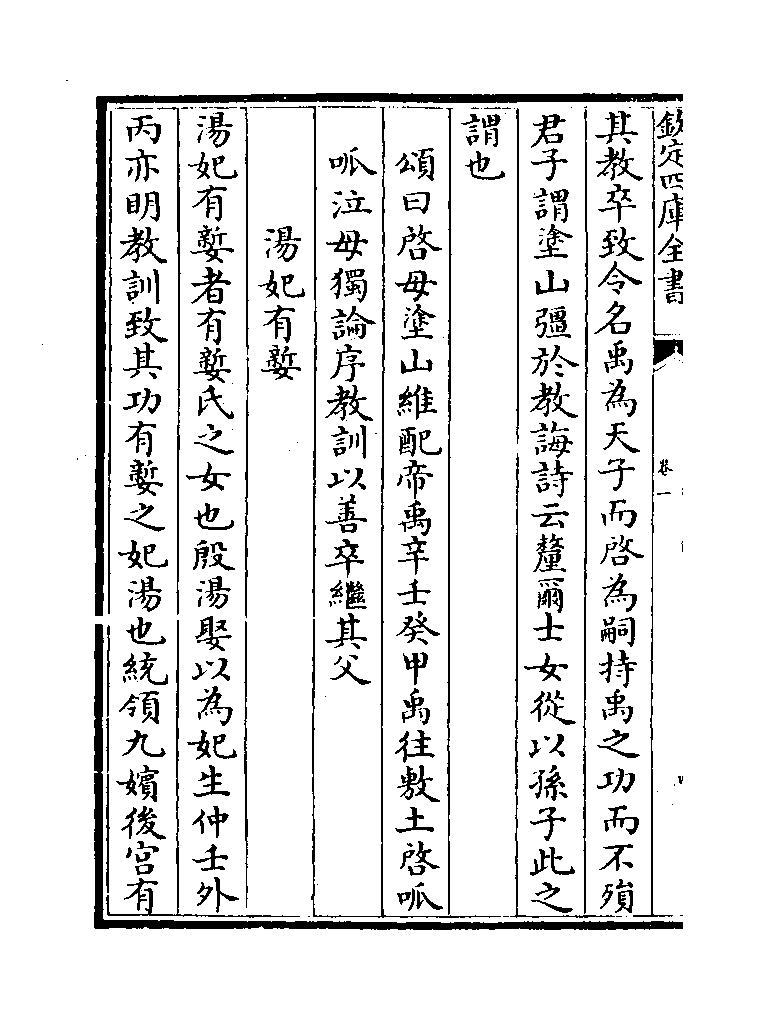 欽定四庫全書
卷一
其教卒致令名禹為天子而啓為嗣持禹之功而不殞
君子謂塗山彊於教誨詩云釐爾士女從以孫子此之
謂也
頌曰啓母塗山維配帝禹辛壬癸甲禹往敷土啓呱
呱泣母獨論序教訓以善卒繼其父
湯妃有㜪
湯妃有㜪者有㜪氏之女也殷湯娶以為妃生仲壬外
丙亦明教訓致其功有㜪之妃湯也統領九嬪後宮有